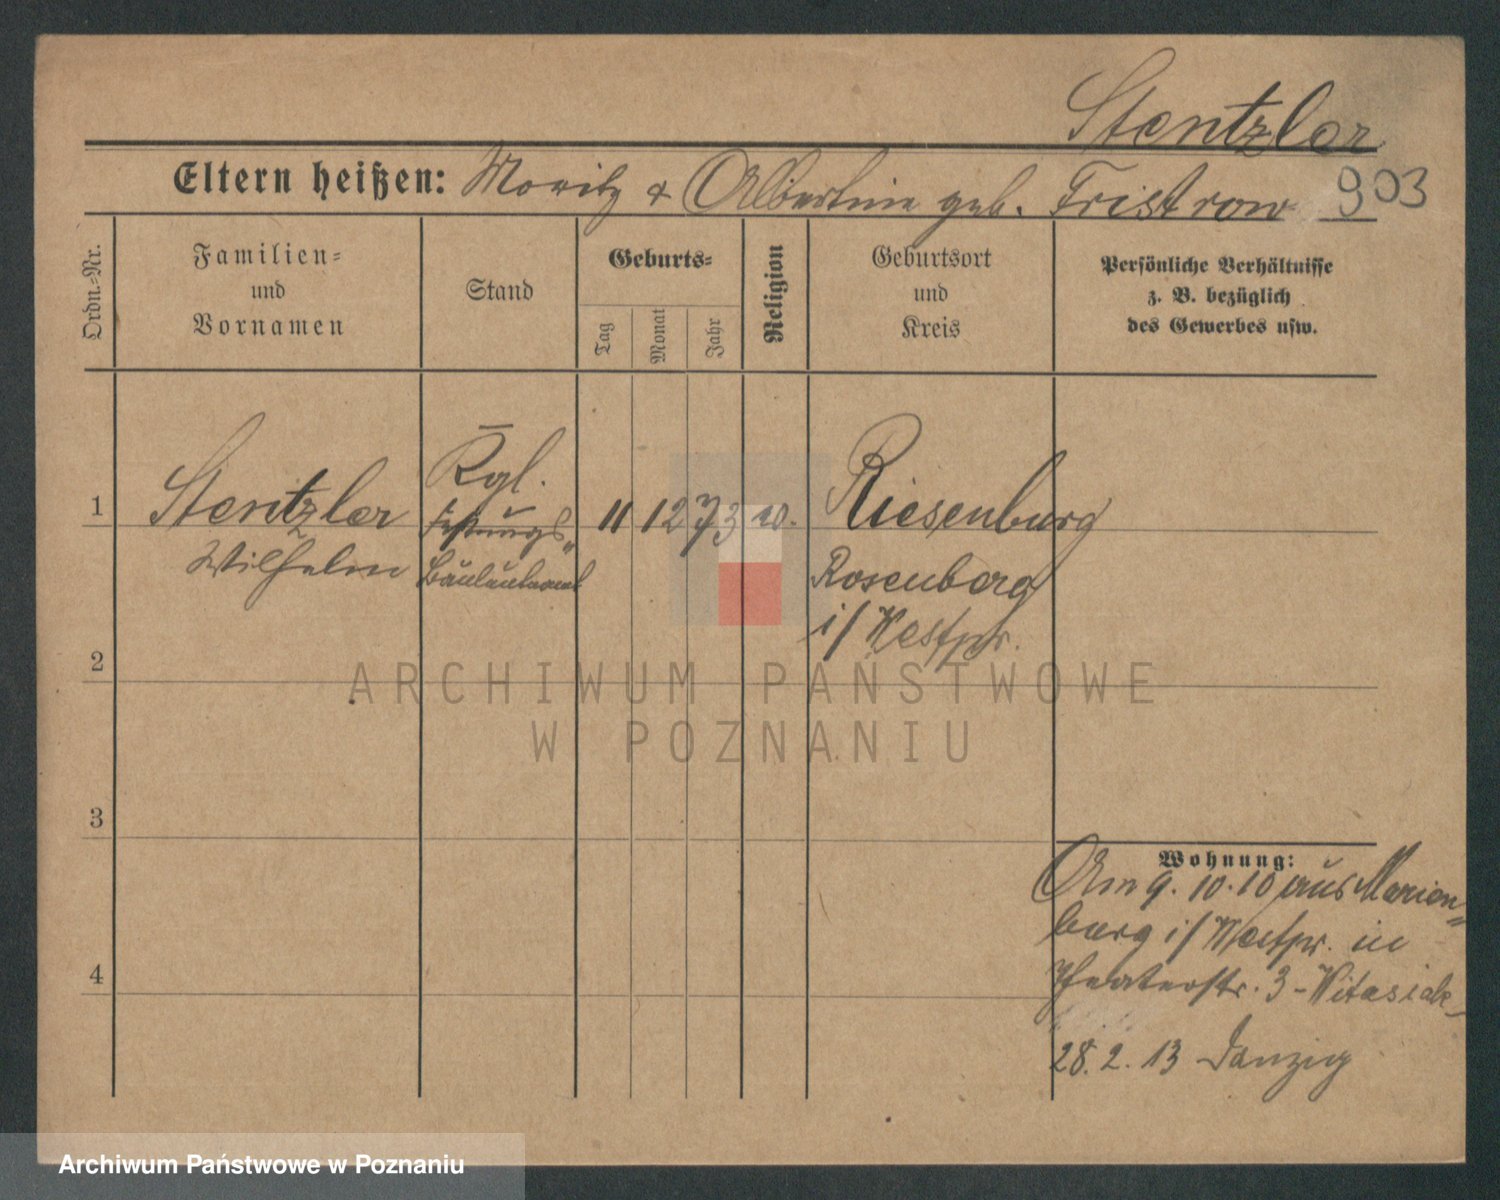 Stentzler
Eltern heißen: Moritz & Albertine geb. Tristrow 903
Ordn.-Nr.
Familien-
und
Vornamen
Stand
Geburts-
Tag
Monat
Jahr
Religion
Geburtsort
und
Kreis
Persönliche Verhältnisse
z. B. bezüglich
des Gewerbes usw.
1
Stentzler
Wilhelm
Kgl.
Festungs-
11 12 73
Riesenburg
Rosenberg
i/Westpr.
2
3
4
Wohnung:
Am 9. 10. 10 aus Marien-
burg i/Westpr. in
Theaterstr. 3 - Witasiak
28. 2. 13 Danzig
ARCHIWUM PAŃSTWOWE
W POZNANIU
Archiwum Państwowe w Poznaniu